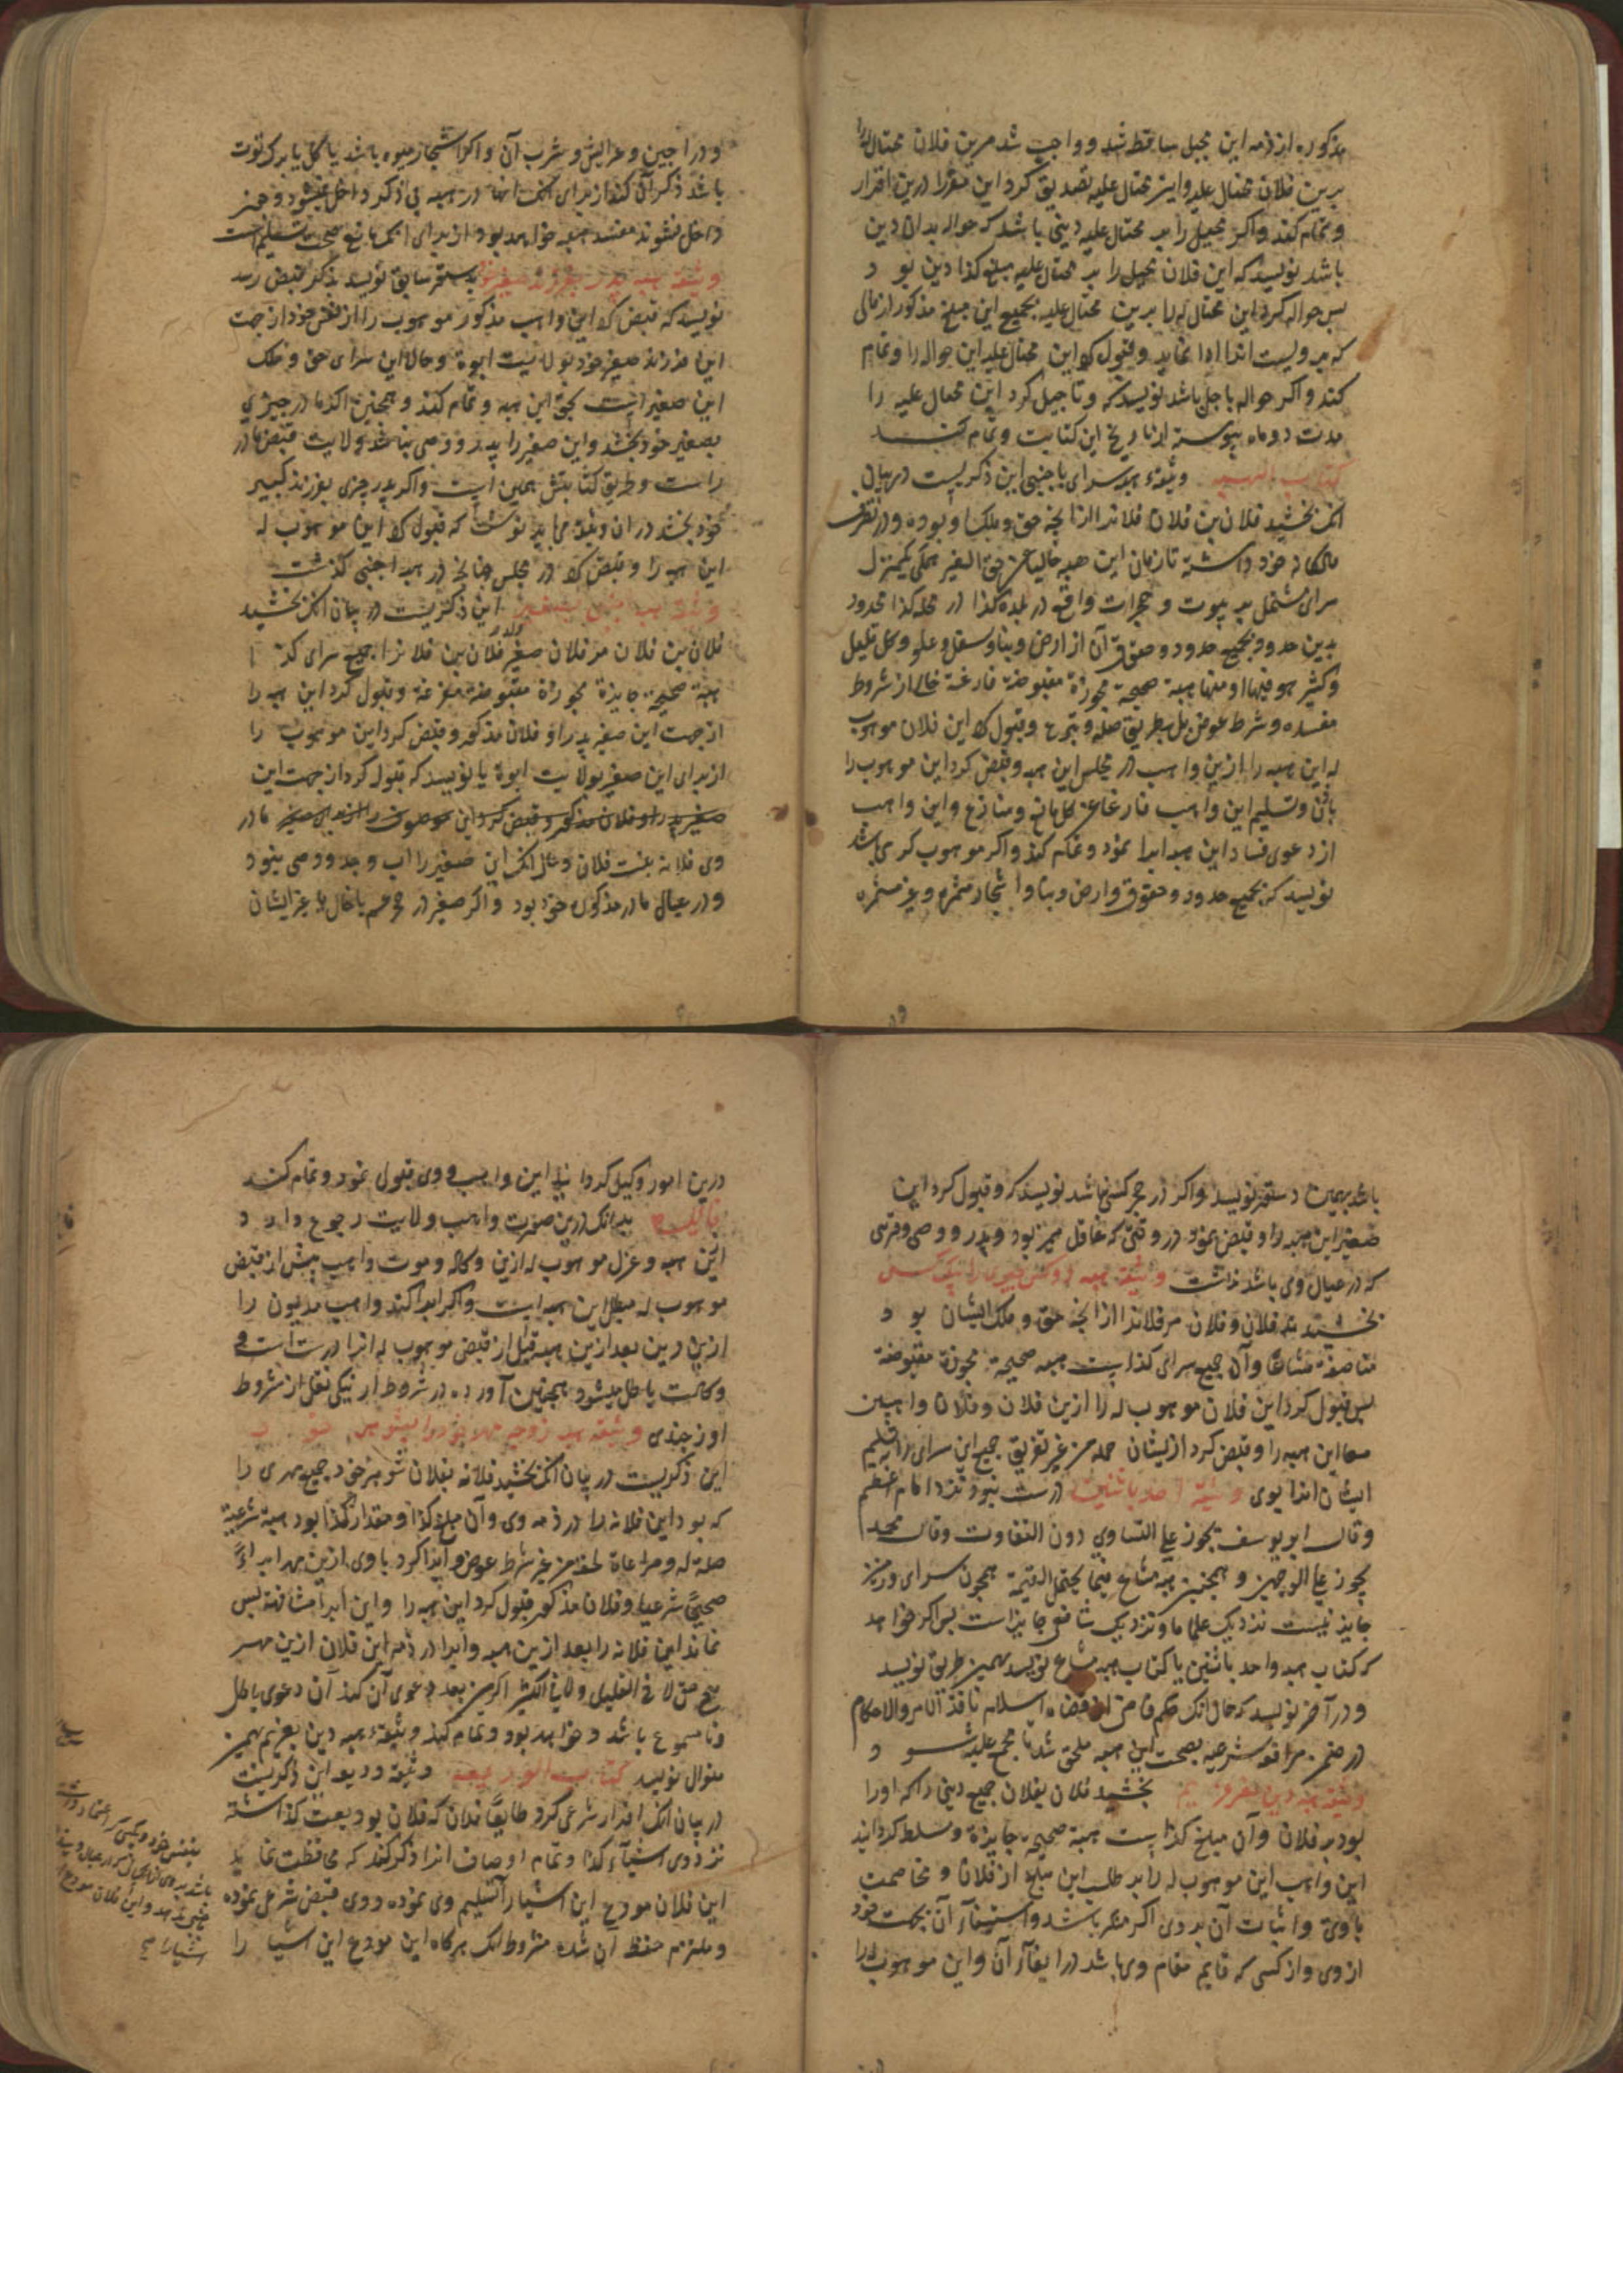 مذکوره از ذمه این محیل ساقط شد و واجب شد مرین فلان محتال له را
برین فلان محتال علیه و این محتال علیه تصدیق کرد این مقر را درین اقرار
و تمام کند و اکر محیل را بر محتال علیه دینی باشد که حواله بدان دین
باشد نویسد که این فلان محیل را بر محتال علیه مبلغ کذا دین بود
پس حواله کرد این محتال له را برین محتال علیه بجمیع این مبلغ مذکور از مالی
که برویست انرا ادا نماید و قبول کرد این محتال علیه این حواله را و تمام
کند و اکر حواله باجل باشد نویسد که و تاجیل کرد این محتال علیه را
مدت دو ماه پیوسته از تاریخ این کتابت و تمام کند
کتاب الهبه وثیقه هبه سرای باجنبی این ذکریست در بیان
انک بخشید فلان بن فلان فلانرا از انچه حق و ملک او بوده و در تصرف
مالکانه خود داشته تا زمان این هبه خالیا عن حق الغیر همکی یکمنزل
سرای مشتمل بر بیوت و حجرات واقع در بلده کذا در محله کذا محدود
بدین حدود بجمیع حدود و حقوق آن از ارض و بنا و سفل و علو و کل قلیل
و کثیر هو فیها او منها هبة صحیحة محوزة مقبوضة فارغة خالی از شروط
مفسده و شرط عوض بل بطریق صله و تبرع و قبول کرد این فلان موهوب
له این هبه را ازین واهب در مجلس این هبه و قبض کرد این موهوب را
باذن و تسلیم این واهب فارغا عن کل مانع و منازع و این واهب
از دعوی فساد این هبه ابرا نمود و تمام کند و اکر موهوب کرمی باشد
نویسد که بجمیع حدود و حقوق و ارض و بنا و اشجار مثمره و غیر مثمره
و دراجین و عرایش و شرب آن و اکر اشجار میوه باشد یا کل یا برک توت
باشد ذکر آن کند از برای انک انها در هبه بی ذکر داخل نمیشود و هر
داخل نشوند مفسد هبه خواهد بود از برای انک مانع صحت تسلیم است
وثیقه هبه پدر بفرزند صغیر خود بدستور سابق نویسد بذکر قبض رسد
نویسد که قبض کرد این واهب مذکور موهوب را از نفس خود از جهت
این فرزند صغیر خود بولایت ابوة و حالا این سرای حق و ملک
این صغیر است بحق این هبه و تمام کند و همچنین اکر مادر چیزی
بصغیر خود بخشد و این صغیر را پدر و وصی نباشد ولایت قبض مادر
راست و طریق کتابتش همین است و اکر پدر چیزی بفرزند کبیر
خود بخشد در ان وثیقه می باید نوشت که قبول کرد این موهوب له
این هبه را و قبض کرد در مجلس چنانچه در هبه اجنبی کذشت
این ذکریست در بیان انک بخشید
فلان بن فلان مر فلان صغیر ولد فلان بن فلانرا جمیع سرای کذا
هبة صحیحة جایزة محوزة مقبوضة مفرغة و قبول کرد این هبه را
از جهت این صغیر پدر او فلان مذکور و قبض کرد این موهوب را
از برای این صغیر بولایت ابوة یا نویسد که قبول کرد از جهت این
صغیر پدر او فلان مذکور و قبض کرد این موهوب را از برای صغیر مادر
وی فلانه بنت فلان و حال انک این صغیر را اب و جد و وصی نبود
و در عیال مادر مذکوره خود بود و اکر صغیر در حجر عم یا خال یا غیر ایشان
باشد بهمین دستور نویسد و اکر در حجر کسی نباشد نویسد که و قبول کرد این
صغیر این هبه را و قبض نمود در وقتی که عاقل ممیز بود و پدر و وصی و قریبی
که در عیال وی باشد نداشت وثیقه هبه دو کس چیزی را بیک کس
بخشیدند فلان و فلان مر فلانرا از انچه حق و ملک ایشان بود
مناصفة مشاعا و آن جمیع سرای کذاست هبه صحیحة محوزة مقبوضة
پس قبول کرد این فلان موهوب له را ازین فلان و فلان واهبین
معا این هبه را و قبض کرد ازیشان جملة من غیر تفریق جمیع این سرای را بتسلیم
ایشان انرا بوی وثیقه هبه احد باثنین درست نبود نزد امام اعظم
و قال ابو یوسف یجوز علی التساوی دون التفاوت و قال محمد
یجوز علی الوجهین و همچنین هبه مشاع فیما یحتمل القسمة همچون سرای و زمین
جایز نیست نزدیک علما ما و نزدیک شافعی جایز است پس اکر خواهد
که کتاب هبه واحد باثنین یا کتاب هبه مشاع نویسد بهمین طریق نویسد
و در آخر نویسد که حال انک حکم قاضی از قضاة اسلام نافذ الامر و الاحکام
در ضمن مرافعه شرعیه بصحت این هبه ملحق شد تا مجمع علیه شود
وثیقه هبه دین بغیر غریم بخشید فلان بفلان جمیع دینی را که او را
بود بر فلان و آن مبلغ کذاست هبة صحیحة جایزة و مسلط کردانید
این واهب این موهوب له را بر طلب این مبلغ از فلان و مخاصمت
باوی و اثبات آن بر وی اکر منکر باشد و استیفآء آن بجهت خود
از وی و از کسی که قایم مقام وی باشد در ایفآء آن و این موهوب له را
درین امور وکیل کردانید این واهب و وی قبول نمود و تمام کند
بدانک درین صورت واهب ولایت رجوع دارد
این هبه و عزل موهوب له ازین وکاله و موت واهب پیش از قبض
موهوب له مبطل این هبه است و اکر ابرا کند واهب مدیون را
ازین دین بعد ازین هبه قبل از قبض موهوب له انرا درست است و
وکالت باطل میشود همچنین آورده در شروط ابرنیکی نقل از شروط
اوزجندی وثیقه هبه زوجه مهر خود را بشوهر خود
این ذکریست در بیان انک بخشید فلانه بفلان شوهر خود جمیع مهری را
که بود این فلانه را در ذمه وی و آن مبلغ کذا و مقدار کذا بود هبة شرعیة
صلة له و مراعاة لحقه من غیر شرط عوض و ابرا کرد باوی ازین مهر ابراءً
صحیحًا شرعیا و فلان مذکور قبول کرد این هبه را و این ابرا مشافهة پس
نماند این فلانه را بعد ازین هبه و ابرا در ذمه این فلان ازین مهر
هیچ حق لا فی القلیل و لا فی الکثیر اکر من بعد دعوی آن کند آن دعوی باطل
و نامسموع باشد و خواهد بود و تمام کند وثیقه هبه دین بغریم بهمین
منوال نویسد کتاب الودیعه وثیقه ودیعه این ذکریست
در بیان انک اقرار شرعی کرد طایعًا فلان که فلان بودیعت کذاشته
نزد وی اشیآء کذا و تمام اوصاف انرا ذکر کند که محافظت نماید
این فلان مودع این اشیا را تسلیم وی نموده و وی قبض شرعی نموده
و ملتزم حفظ آن شده مشروط انک هرکاه این مودع این اشیا را
بنفس خود و بکسی که اعتماد دارد
اشیا را صح